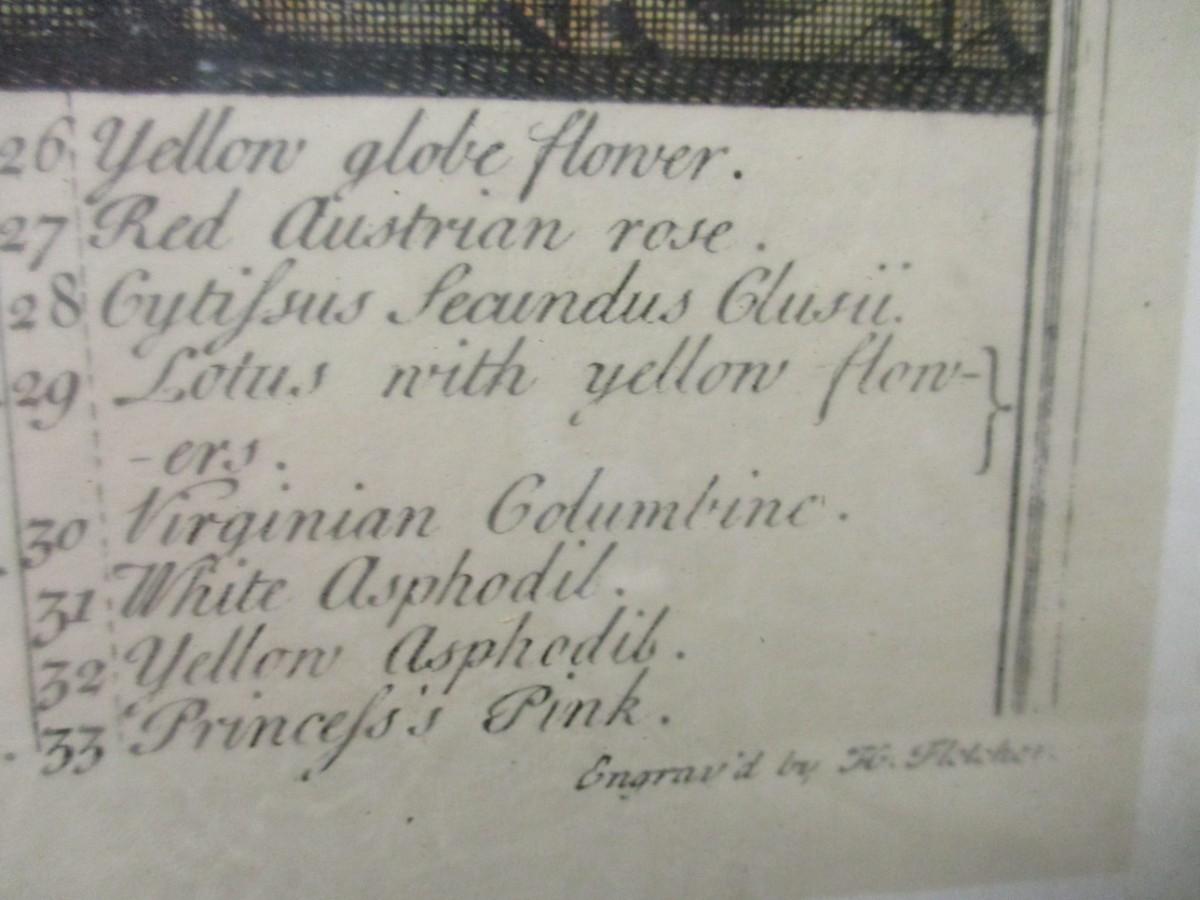 26 Yellow globe flower.
27 Red Austrian rose.
28 Cytiſsus Secundus Clusii.
29 Lotus with yellow flow-
-ers.
30 Virginian Columbine.
31 White Asphodil.
32 Yellow Asphodil.
33 Princeſs's Pink.
Engrav'd by H. Fletcher.